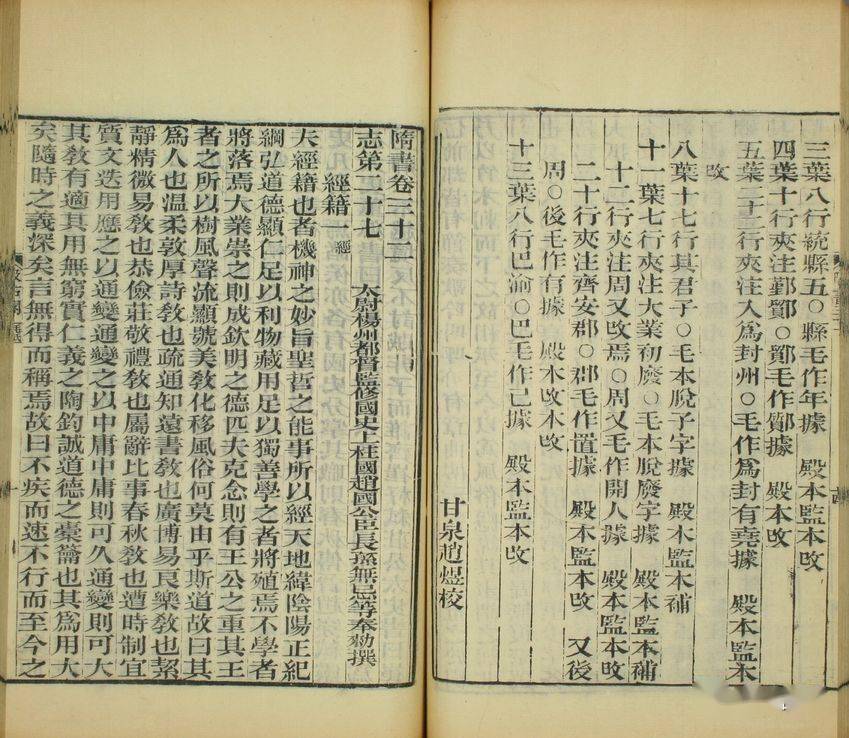 三葉八行統縣五○縣毛作年據　殿本監本改
四葉十行夾注鄞鄮○鄮毛作鄭據　殿本改
五葉二十三行夾注入爲封州○毛作爲封有堯據　殿本監本
改
八葉十七行其君子○毛本脫子字據　殿本監本補
十一葉七行夾注大業初廢○毛本脫廢字據　殿本監本補
十二行夾注周又改焉○周又毛作開人據　殿本監本改
二十行夾注齊安郡○郡毛作置據　殿本監本改　又後
周○後毛作有據　殿本改本改
十三葉八行巴渝○巴毛作已據　殿本監本改
甘泉趙煜校
隋書卷三十二
志第二十七　太尉楊州都督監修國史上柱國趙國公臣長孫無忌等奉勑撰
經籍一經
夫經籍也者機神之妙旨聖哲之能事所以經天地緯陰陽正紀
綱弘道德顯仁足以利物藏用足以獨善學之者將殖焉不學者
將落焉大業崇之則成欽明之德匹夫克念則有王公之重其王
者之所以樹風聲流顯號美敎化移風俗何莫由乎斯道故曰其
爲人也溫柔敦厚詩敎也疏通知遠書敎也廣博易良樂敎也絜
靜精微易敎也恭儉莊敬禮敎也屬辭比事春秋敎也遭時制宜
質文迭用應之以通變通變之以中庸中庸則可久通變則可大
其敎有適其用無窮實仁義之陶鈞誠道德之橐籥也其爲用大
矣隨時之義深矣言無得而稱焉故曰不疾而速不行而至今之